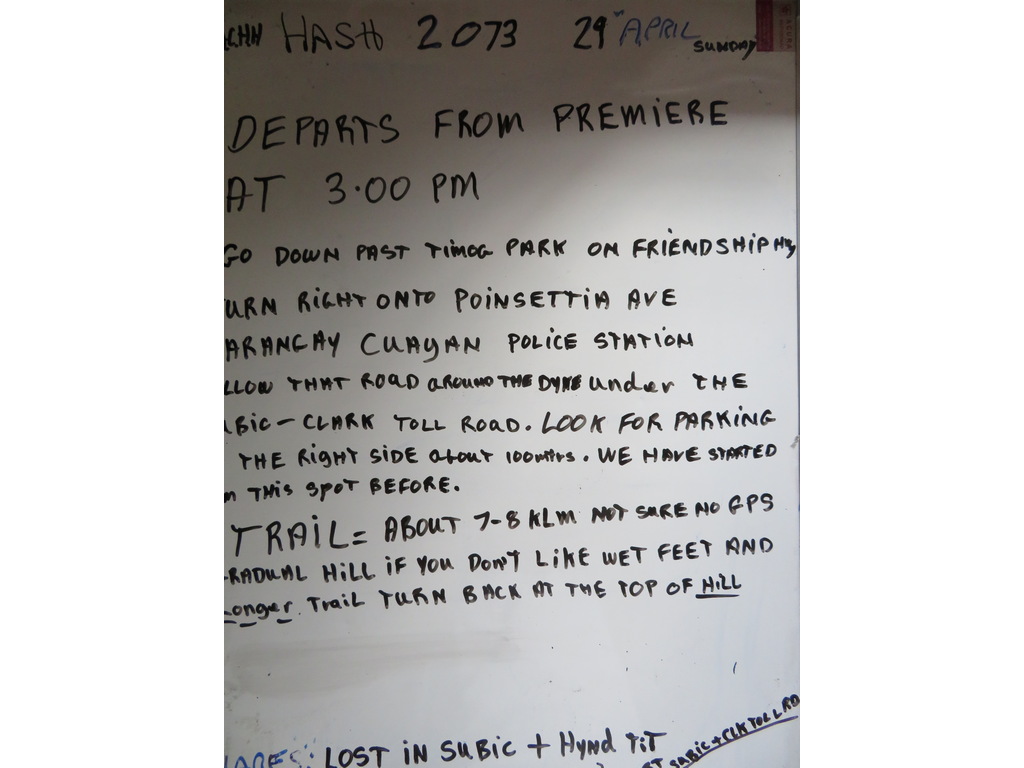 HASH 2073 29TH APRIL SUNDAY
DEPARTS FROM PREMIERE
AT 3.00 PM
GO DOWN PAST TIMOG PARK ON FRIENDSHIP HY
URN RIGHT ONTO POINSETTIA AVE
ARANGAY CUAYAN POLICE STATION
LLOW THAT ROAD AROUND THE DYKE under THE
BIC - CLARK TOLL ROAD. LOOK FOR PARKING
THE RIGHT SIDE about 100mtrs. WE HAVE STARTED
M THIS SPOT BEFORE.
TRAIL = ABOUT 7-8 KLM NOT SURE NO GPS
GRADUAL HILL IF YOU DON'T LIKE WET FEET AND
Longer Trail TURN BACK AT THE TOP OF HILL
HARES: LOST IN SUBIC + Hynd TiT
SUBIC + CLK TOLL RD